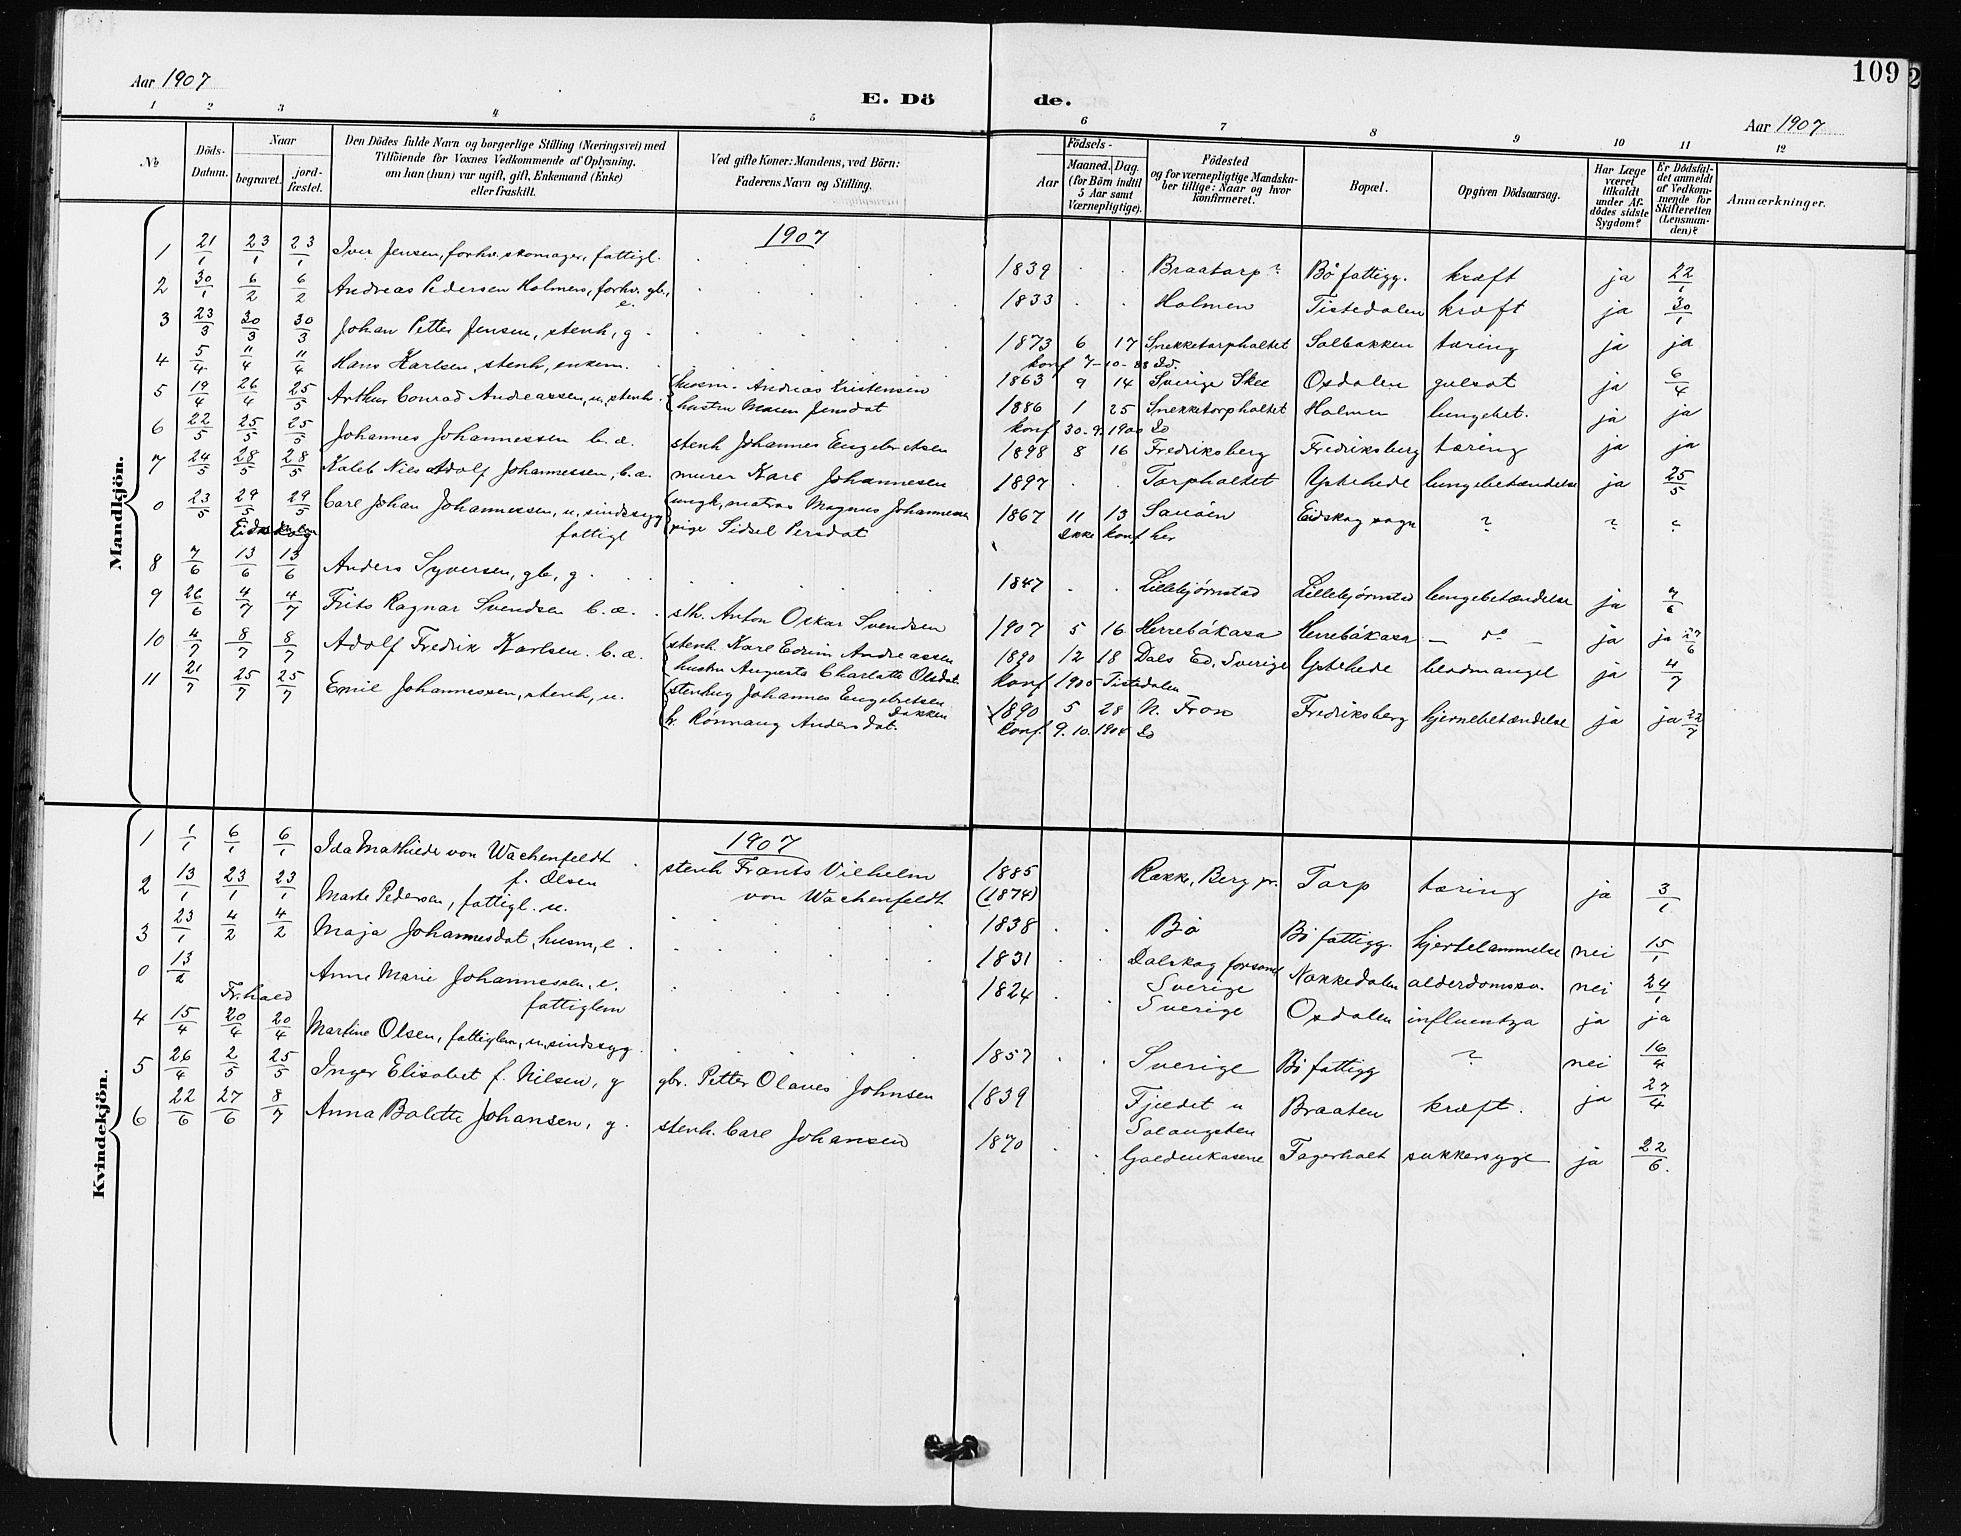 109
Aar 1907
E. Dö de.
Aar 1907
1 2 3 4 5 6 7 8 9 10 11 12
No
Döds-Datum.
Naar
begravet.
jord-fæstet.
Den Dödes fulde Navn og borgerlige Stilling (Næringsvei) med
Tilföiende for Voxnes Vedkommende af Oplysning,
om han (hun) var ugift, gift, Enkemand (Enke)
eller fraskilt.
Ved gifte Koner: Mandens, ved Börn:
Faderens Navn og Stilling.
Födsels-
Aar
Maaned. Dag.
(for Börn indtil
5 Aar samt
Værnepligtige).
Födested
og for værnepligtige Mandska-
ber tillige: Naar og hvor
konfirmeret.
Bopæl.
Opgiven Dödsaarsag.
Har Læge
været
tilkaldt
under Af-
dödes sidste
Sygdom?
Er Dödsfal-
det anmeldt
af Vedkom-
mende for
Skifteretten
(Lensman-
den)?
Anmærkninger.
Mandkjön.
1907
1 21/1 23/1 23/1 Iver Jensen, forhv. skomager, fattigl. 1839 Braatorp? Bö fattigg. kræft ja 22/1
2 30/1 6/2 6/2 Andreas Pedersen Holmen, forhv. gb., e. 1833 Holmen Tistedalen kræft ja 30/1
3 23/3 30/3 30/3 Johan Petter Jensen, stenh, g. 1873 6 17 Snekketorpholtet Solbakken tæring ja ja
konf 7-10-88 Do.
4 5/4 11/4 11/4 Hans Karlsen, stenh, enkem. 1863 9 14 Sverige Skee Oxdalen gulsot ja 6/4
5 19/4 26/4 25/5 Arthur Conrad Andreassen, u, stenh. husm. Andreas Kristensen 1886 1 25 Snekketorpholtet Holmen lungebet. ja ja
hustru Maren Jensdat konf 30.9.1900 Do
6 22/5 25/5 25/5 Johannes Johannessen b. æ. stenh Johannes Engebretsen 1898 8 16 Fredriksberg Fredriksberg tæring ja ja
7 24/5 28/5 28/5 Kaleb Nils Adolf Johannessen, b. æ. murer Karl Johannesen 1897 Torpholtet Yptehede lungebetændelse ja 25/5
0 23/5 29/5 29/5 Carl Johan Johannessen, u, sindssyg ungk, matros Magnus Johannessen 1867 11 13 Sanöen Eidskog sogn ? ? ?
Eidskog fattigl pige Sidsel Persdat ikke konf her
8 7/6 13/6 13/6 Anders Syversen, gb, g. 1847 Lillebjørnstad Lillebjørnstad lungebetændelse ja 7/6
9 26/6 4/7 4/7 Frits Ragnar Svendsen b. æ. sth. Anton Oskar Svendsen 1907 5 16 Herrebåkasa Herrebåkasa - do - ja ja 27/6
10 4/7 8/7 8/7 Adolf Fredrik Karlsen. b. æ. stenh. Karl Edvin Andreassen 1890 12 18 Dals Ed, Sverige Yptehede blodmangel ja 4/7
hustru Augusta Charlotte Olsdat. konf 1905 Tistedalen
11 21/7 25/7 25/7 Emil Johannessen, stenh, u. stenhug Johannes Engebretsen 1890 5 28 N. Fron Fredriksberg hjernebetændelse ja ja 22/7
h. Rönnaug Andersdat. konf. 9.10.1904 Do
Kvindekjön.
1907
1 1/1 6/1 6/1 Ida Mathilde von Wachenfeldt stenh Frants Vilhelm 1885 Rakk., Berg pr. Torp tæring ja 3/1
f. Olsen von Wachenfeldt (1874)
2 13/1 23/1 23/1 Marte Pedersen, fattigl. u. 1838 Bö Bö fattigg. hjertelammelse nei 15/1
3 23/1 4/2 4/2 Maja Johannesdat, husm, e. 1831 Dalskog forsaml Nakkedalen alderdomssv. nei 24/1
Sverige
0 13/2 Anne Marie Johannessen, e. 1824 Sverige Oxdalen influentza ja ja
Fr.hald fattiglem
4 15/4 20/4 20/4 Martine Olsen, fattiglem, u, sindssyg. 1857 Sverige Bö fattigg ? nei 16/4
5 26/4 2/5 25/5 Inger Elisabet f. Nilsen, g gbr. Petter Olaves Johnsen 1839 Fjeldet u Braaten kræft. ja 27/4
6 22/6 27/6 8/7 Anna Bolette Johansen, g. stenh. Carl Johansen 1870 Goldenkasene Fagerholt sukkersyge ja 22/6.